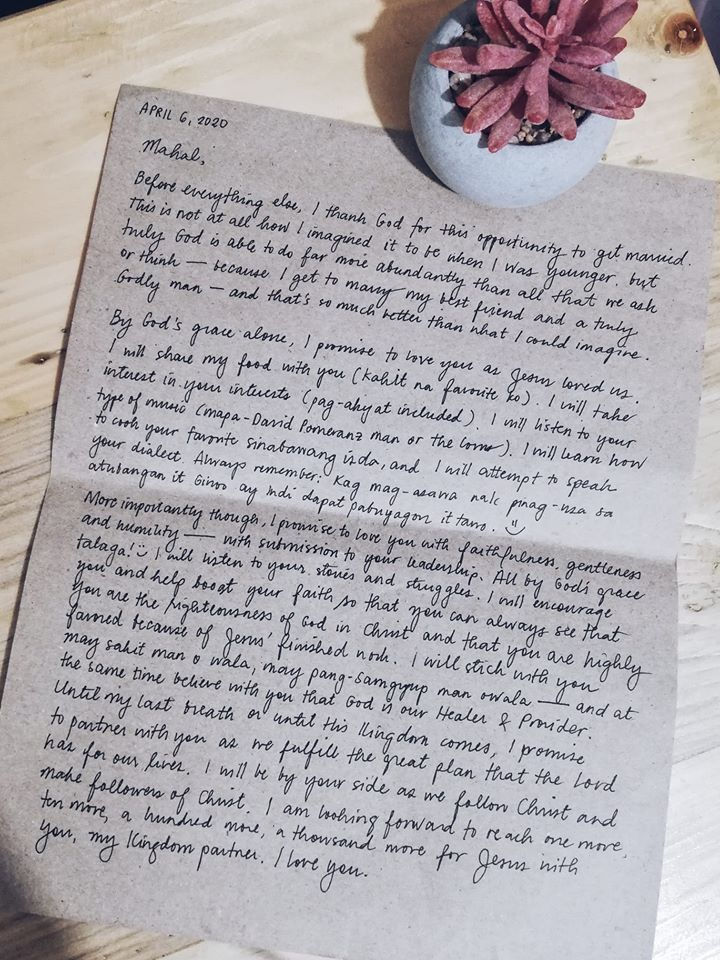 APRIL 6, 2020
Mahal,
Before everything else, I thank God for this opportunity to get married.
This is not at all how I imagined it to be when I was younger. but
truly God is able to do far more abundantly than all that we ask
or think — because I get to marry my best friend and a truly
Godly man — and that's so much better than what I could imagine.
By God's grace alone, I promise to love you as Jesus loved us.
I will share my food with you (kahit na favorite ko). I will take
interest in your interests (pag-ahyat included). I will listen to your
type of music (mapa-David Pomeranz man or the ). I will learn how
to cook your favorite sinabawang isda, and I will attempt to speak
your dialect. Always remember: Kag mag-asawa nak pinag-usa sa
atubangan it Ginoo ay indi dapat pabuyagon it tawo. :)
More importantly though, I promise to love you with faithfulness, gentleness
and humility — with submission to your leadership. All by God's grace
talaga! :) I will listen to your stories and struggles. I will encourage
you and help boost your faith so that you can always see that
you are the righteousness of God in Christ and that you are highly
favored because of Jesus' finished work. I will stick with you
may sakit man o wala, may pang-samgyup man o wala — and at
the same time believe with you that God is our Healer & Provider.
Until my last breath or until His Kingdom comes, I promise
to partner with you as we fulfill the great plan that the Lord
has for our lives. I will be by your side as we follow Christ and
make followers of Christ. I am looking forward to reach one more,
ten more, a hundred more, a thousand more for Jesus with
you, my Kingdom partner. I love you.